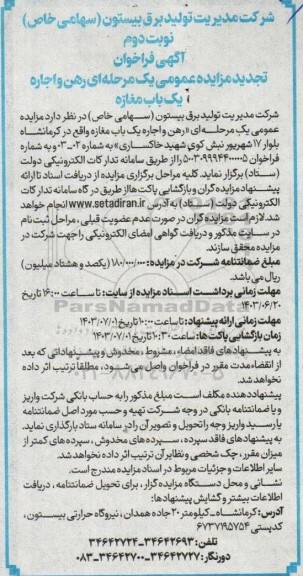 شرکت مدیریت تولید برق بیستون (سهامی خاص)
نوبت دوم
آگهی فراخوان
تجدید مزایده عمومی یک مرحله‌ای رهن و اجاره
یک باب مغازه
شرکت مدیریت تولید برق بیستون (سهامی خاص) در نظر دارد مزایده
عمومی یک مرحله‌ای «رهن و اجاره یک باب مغازه واقع در کرمانشاه
بلوار ۱۷ شهریور نبش کوی شهید خاکساری» به شماره ۰۲-۰۳ و به شماره
فراخوان ۵۰۰۳۰۹۹۹۴۴۰۰۰۰۰۵ را از طریق سامانه تدارکات الکترونیکی دولت
(ستاد) برگزار نماید. کلیه مراحل برگزاری مزایده از دریافت اسناد تا ارائه
پیشنهاد مزایده‌گران و بازگشایی پاکت‌ها از طریق درگاه سامانه تدارکات
الکترونیکی دولت (ستاد) به آدرس www.setadiran.ir انجام خواهد
شد. لازم است مزایده‌گران در صورت عدم عضویت قبلی، مراحل ثبت نام
در سایت مذکور و دریافت گواهی امضای الکترونیکی را جهت شرکت در
مزایده محقق سازند.
مبلغ ضمانتنامه شرکت در مزایده: ۱۸۰/۰۰۰/۰۰۰ (یکصد و هشتاد میلیون)
ریال می‌باشد.
مهلت زمانی برداشت اسناد مزایده از سایت: تا ساعت ۱۶:۰۰ تاریخ
۱۴۰۳/۰۶/۲۰
مهلت زمانی ارائه پیشنهاد: تا ساعت ۱۰:۰۰ تاریخ ۱۴۰۳/۰۷/۰۱
زمان بازگشایی پاکت‌ها: ساعت ۱۰:۳۰ تاریخ ۱۴۰۳/۰۷/۰۱
به پیشنهادهای فاقد امضاء، مشروط، مخدوش و پیشنهاداتی که بعد از
انقضاء مدت مقرر در فراخوان واصل می‌شود، مطلقا ترتیب اثر داده
نخواهد شد.
پیشنهاددهنده مکلف است مبلغ مذکور را به حساب بانکی شرکت واریز
و یا ضمانتنامه بانکی در وجه شرکت تهیه و حسب مورد اصل ضمانتنامه
یا رسید واریز وجه را تحویل و تصویر آن را در سامانه ستاد بارگذاری نماید.
به پیشنهادهای فاقد سپرده، سپرده‌های مخدوش، سپرده‌های کمتر از
میزان مقرر، چک شخصی و نظایر آن ترتیب اثر داده نخواهد شد.
سایر اطلاعات و جزئیات مربوط در اسناد مزایده مندرج است.
نشانی و محل دستگاه مزایده‌گزار، برای تحویل ضمانتنامه، دریافت
اطلاعات بیشتر و گشایش پیشنهادها:
آدرس: کرمانشاه - کیلومتر ۲۰ جاده همدان، نیروگاه حرارتی بیستون،
کدپستی ۶۷۳۷۱۹۵۷۵۴
تلفن: ۳۴۶۴۲۶۹۳-۳۴۶۴۲۷۲۴
دورنگار: ۳۴۶۴۲۷۲۷-۳۴۶۴۲۷۰۰-۰۸۳
ParsNamadData